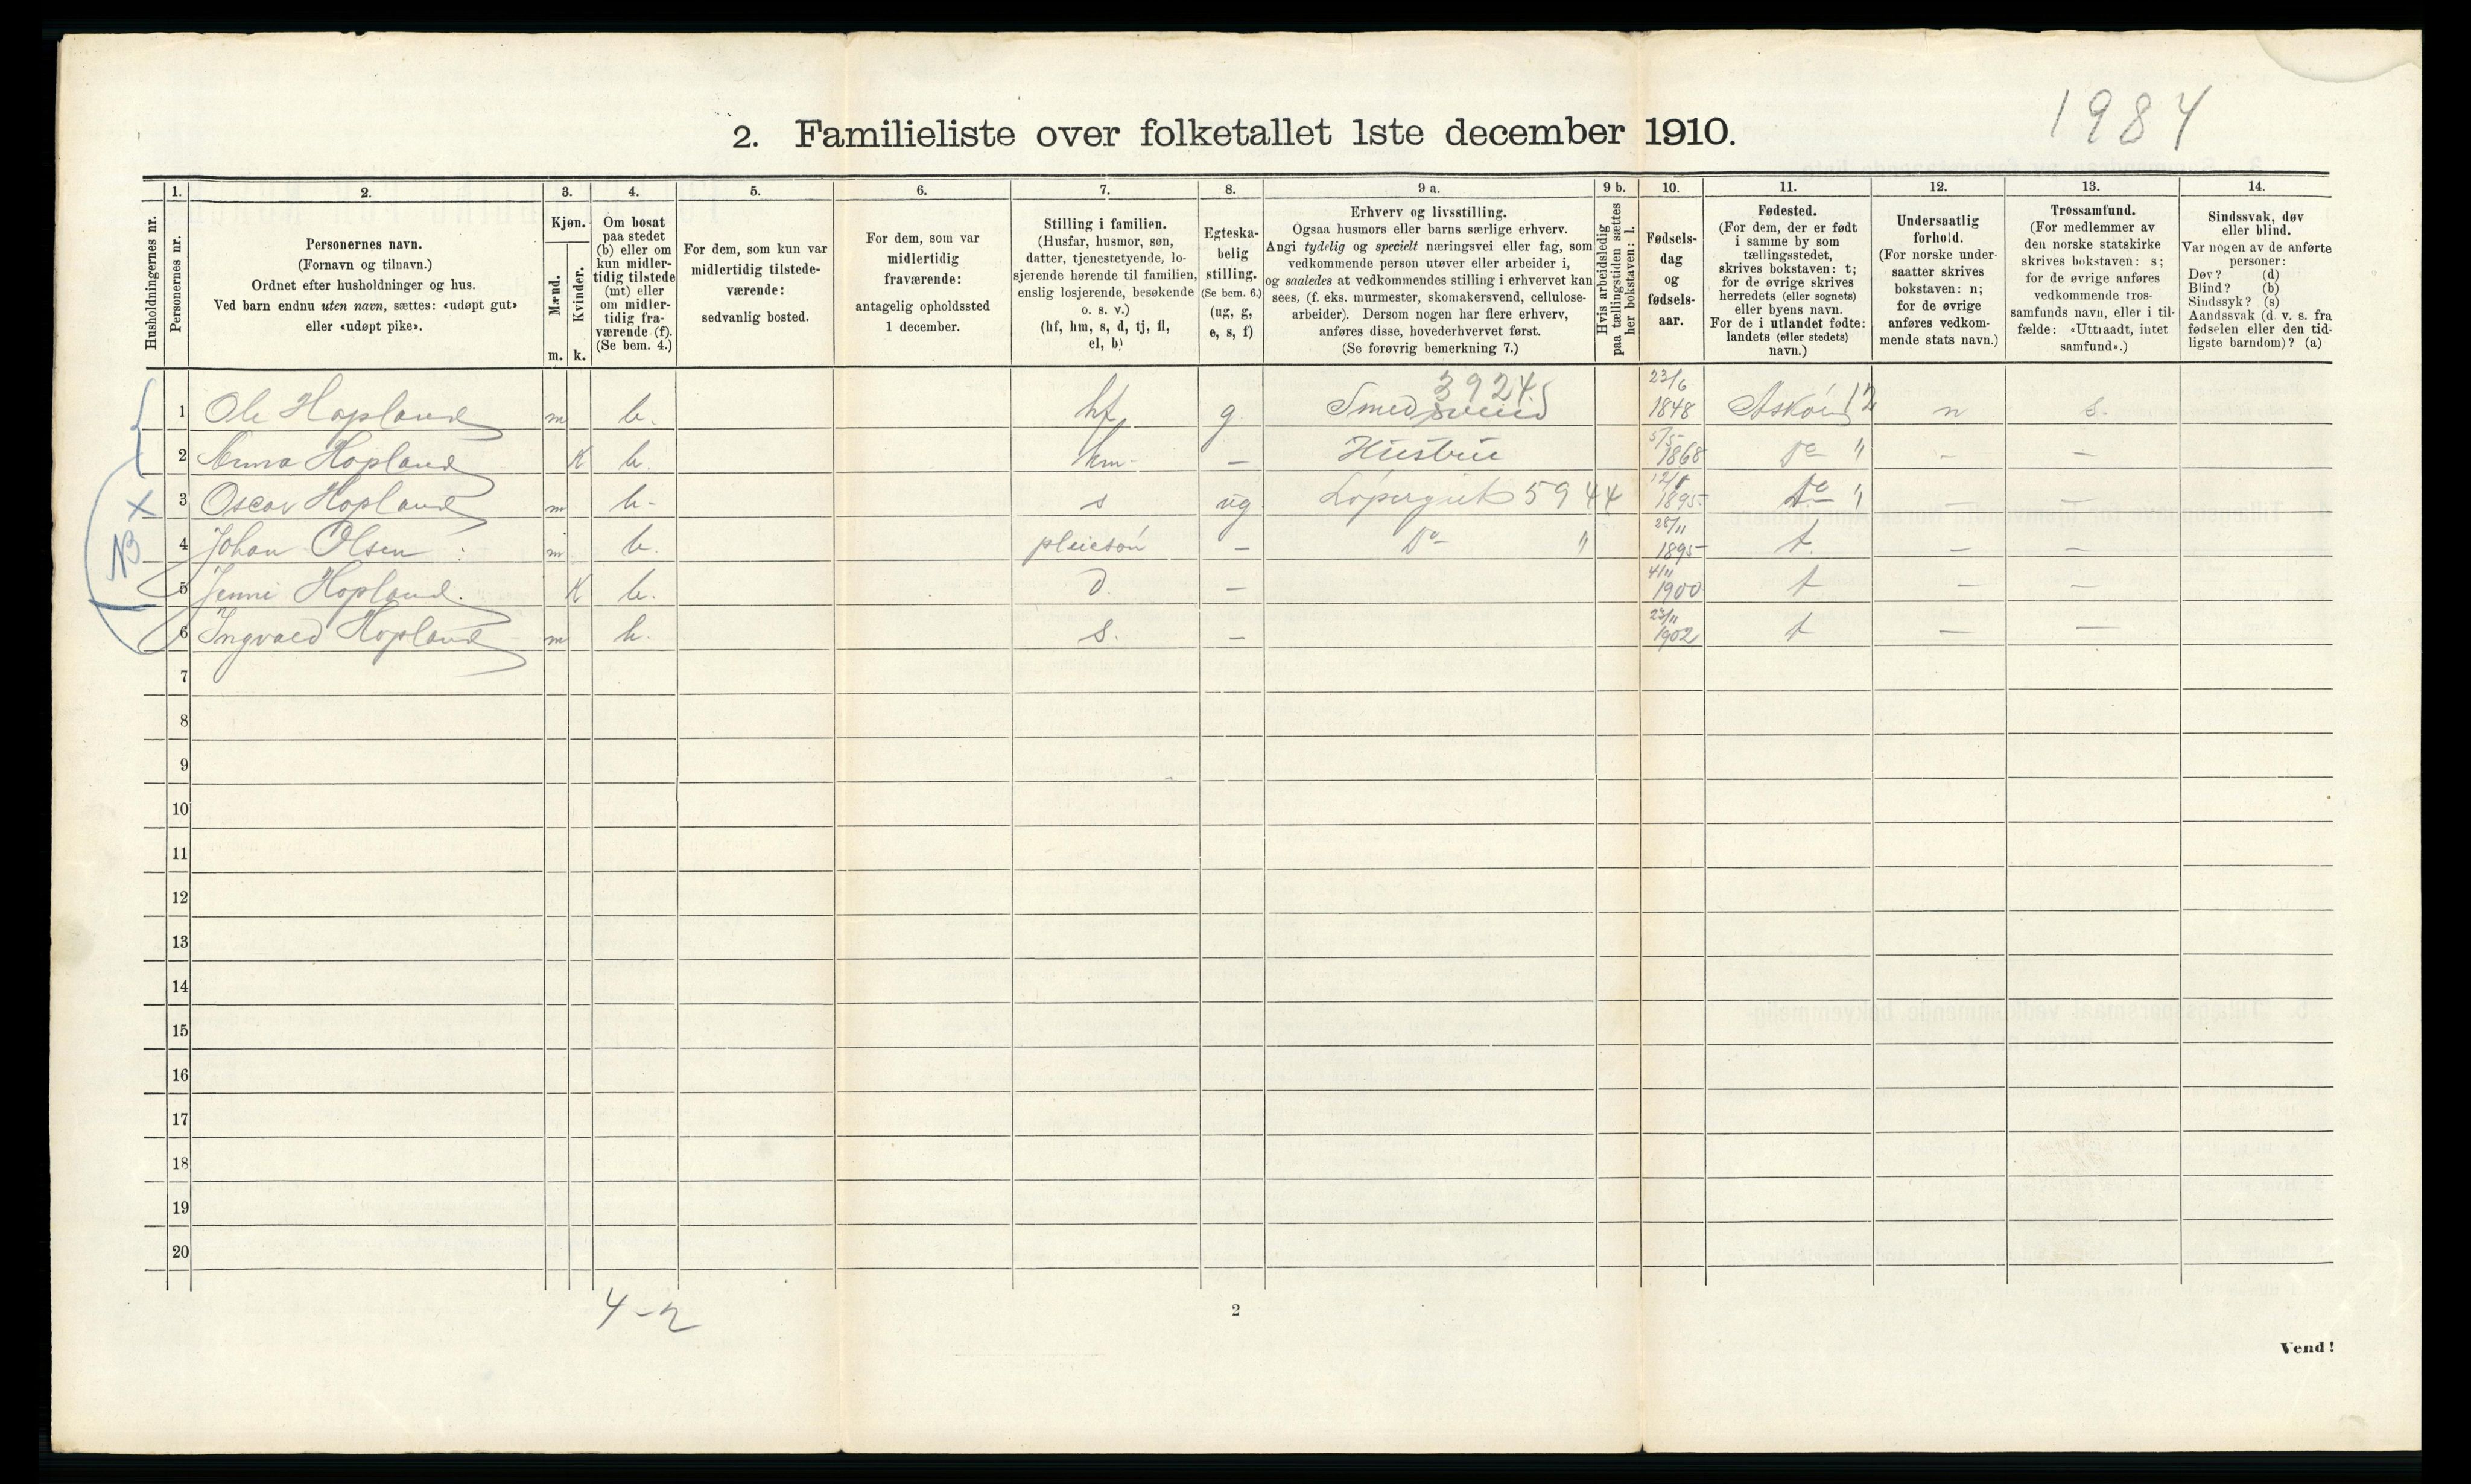 1984
2. Familieliste over folketallet 1ste december 1910.
Husholdningernes nr.
1. Personernes nr.
2. Personernes navn. (Fornavn og tilnavn.) Ordnet efter husholdninger og hus. Ved barn endnu uten navn, sættes: «udøpt gut» eller «udøpt pike».
3. Kjøn. Mænd. m. Kvinder. k.
4. Om bosat paa stedet (b) eller om kun midlertidig tilstede (mt) eller om midlertidig fraværende (f). (Se bem. 4.)
5. For dem, som kun var midlertidig tilstedeværende: sedvanlig bosted.
6. For dem, som var midlertidig fraværende: antagelig opholdssted 1 december.
7. Stilling i familien. (Husfar, husmor, søn, datter, tjenestetyende, losjerende hørende til familien, enslig losjerende, besøkende o. s. v.) (hf, hm, s, d, tj, fl, el, b)
8. Egteskabelig stilling. (Se bem. 6.) (ug, g, e, s, f)
9 a. Erhverv og livsstilling. Ogsaa husmors eller barns særlige erhverv. Angi tydelig og specielt næringsvei eller fag, som vedkommende person utøver eller arbeider i, og saaledes at vedkommendes stilling i erhvervet kan sees, (f. eks. murmester, skomakersvend, cellulosearbeider). Dersom nogen har flere erhverv, anføres disse, hovederhvervet først. (Se forøvrig bemerkning 7.)
9 b. Hvis arbeidsledig paa tællingstiden sættes her bokstaven: l.
10. Fødselsdag og fødselsaar.
11. Fødested. (For dem, der er født i samme by som tællingsstedet, skrives bokstaven: t; for de øvrige skrives herredets (eller sognets) eller byens navn. For de i utlandet fødte: landets (etler stedets) navn.)
12. Undersaatlig forhold. (For norske undersaatter skrives bokstaven: n; for de øvrige anføres vedkommende stats navn.)
13. Trossamfund. (For medlemmer av den norske statskirke skrives bokstaven: s; for de øvrige anføres vedkommende trossamfunds navn, eller i tilfælde: «Uttraadt, intet samfund».)
14. Sindssvak, døv eller blind. Var nogen av de anførte personer: Døv? (d) Blind? (b) Sindssyk? (s) Aandssvak (d. v. s. fra fødselen eller den tidligste barndom)? (a)
1 Ole Hopland m b. hf g. Smedsvend 3924 23/6 1848 Askøen 12 n s.
2 Anna Hopland K b. hm - — Hustru 5/5 1868 Do " - —
X 3 Oscar Hopland m b. s ug Løpergut 5944 1895 Do " — —
NB 4 Johan Olsen m b. pleiesøn — Do " 28/11 1895 t. — —
5 Jenni Hopland. K b. d. — 4/11 1900 t — —
6 Ingvald Hopland m b. s. — 23/11 1902 t — —
7
8
9
10
11
12
13
14
15
16
17
18
19
20
4-2
2
Vend!